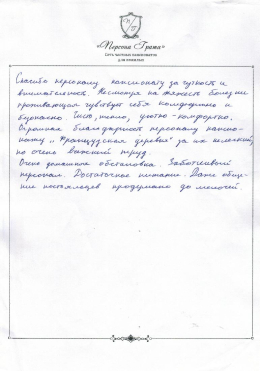 «Персона Грата»
Сеть частных пансионатов
для пожилых
Спасибо персоналу пансионату за чуткость и
внимательность. Несмотря на тяжесть болезни
проживающая чувствует себя комфортно и
безопасно. Чисто, тепло, уютно - комфортно.
Огромная благодарность персоналу пансио-
ната "Французская деревня" за их нелегкий,
но очень важный труд.
Очень домашняя обстановка. Заботливый
персонал. Достаточное питание. Даже обще-
ние постояльцев продумано до мелочей.